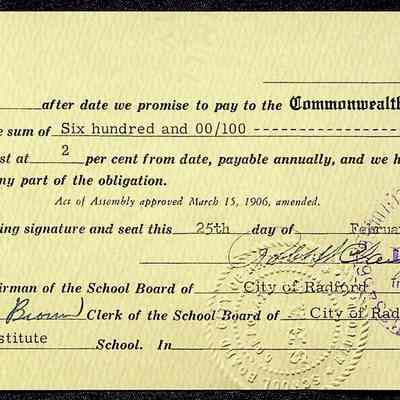 after date we promise to pay to the Commonwealth
e sum of Six hundred and 00/100 ----------------
st at 2 per cent from date, payable annually, and we h
ny part of the obligation.
Act of Assembly approved March 15, 1906, amended.
ing signature and seal this 25th day of Februar
irman of the School Board of City of Radford
Brown Clerk of the School Board of City of Rad
stitute School. In